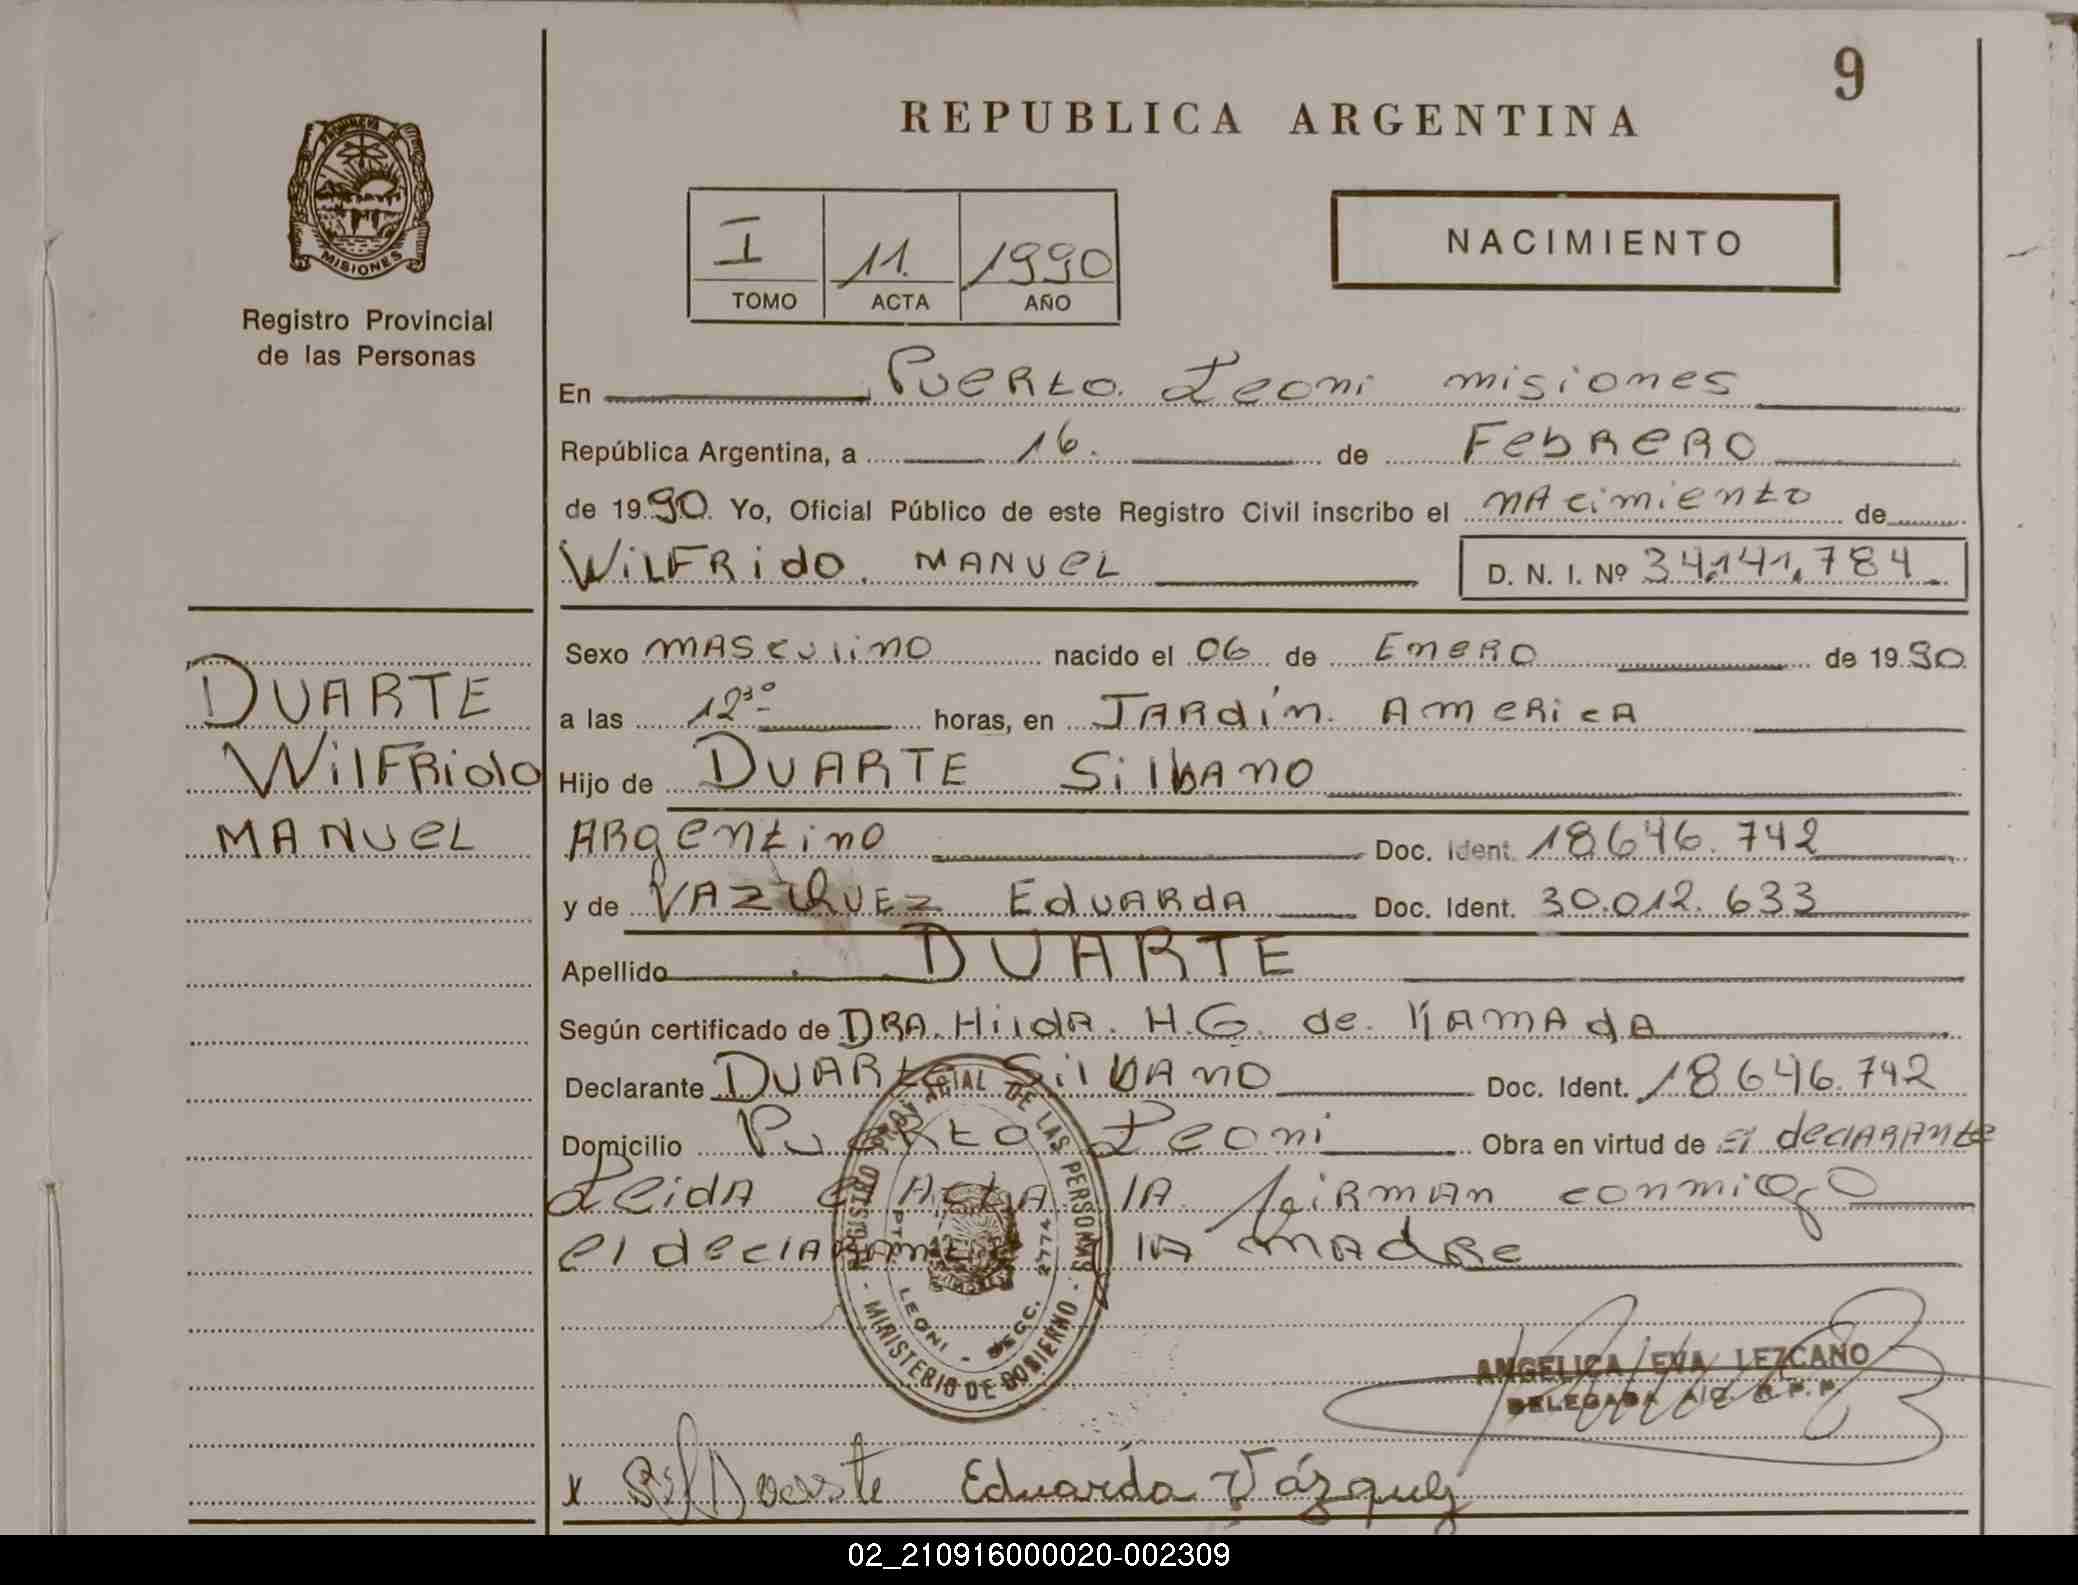 9
REPUBLICA ARGENTINA
PROVINCIA DE
MISIONES
Registro Provincial
de las Personas
I 11. 1990
TOMO ACTA AÑO
NACIMIENTO
En Puerto Leoni misiones
República Argentina, a 16. de Febrero
de 1990. Yo, Oficial Público de este Registro Civil inscribo el nacimiento de
WilFRido MANUEL D. N. I. Nº 34.141.784
DUARTE
WilFRido
MANUEL
Sexo masculino nacido el 06 de Enero de 1990
a las 12³⁰ horas, en Jardín America
Hijo de DUARTE Silbano
Argentino Doc. Ident. 18.646.742
y de VAZQUEZ Eduarda Doc. Ident. 30.012.633
Apellido DUARTE
Según certificado de DRA. Hilda H.G. de Kamada
Declarante DUARTE Silbano Doc. Ident. 18.646.742
Domicilio Puerto Leoni Obra en virtud de El declarante
Leida el Acta la firman conmigo
el declarante la madre
REGISTRO PROVINCIAL DE LAS PERSONAS
MINISTERIO DE GOBIERNO
PTO. LEONI - SECC. 2774
ANGELICA EVA LEZCANO
DELEGADA A/C. R.P.P.
x Sil Duarte Eduarda Vázquez
02_210916000020-002309